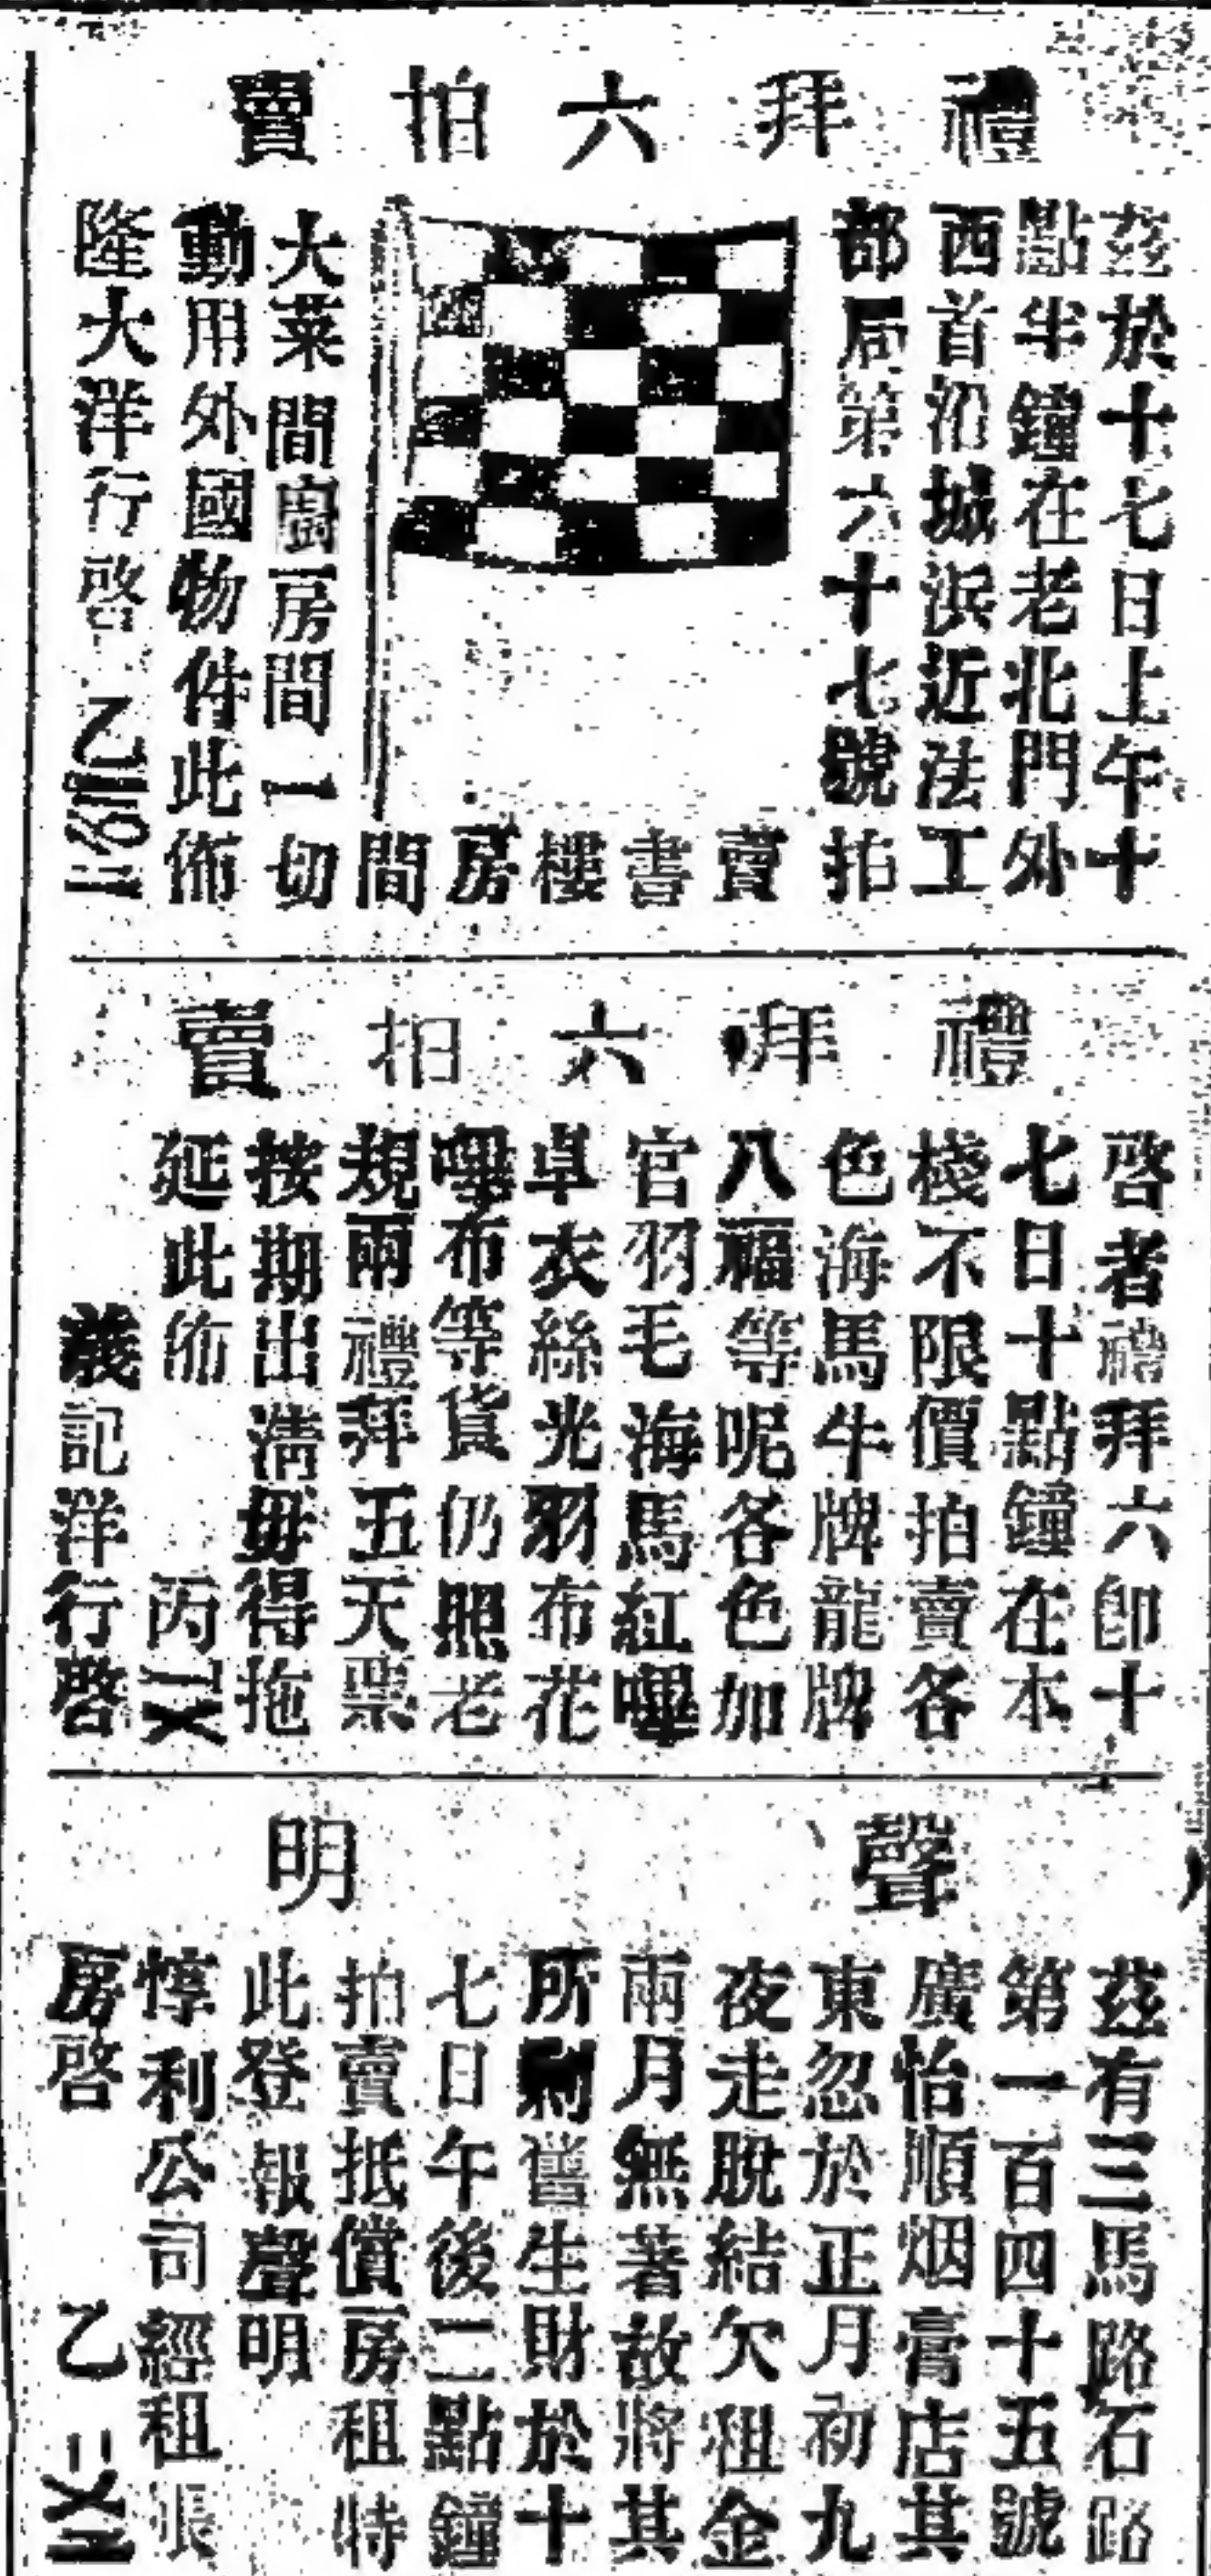 禮拜六拍賣
茲於十七日上午十
點半鐘在老北門外
西首沿城浜近法工
部局第六十七號拍
賣書樓房間
大菜間廚房間一切
動用外國物件此佈
隆大洋行啓 乙
禮拜六拍賣
啓者禮拜六卽十
七日十點鐘在本
棧不限價拍賣各
色海馬牛牌龍牌
八福等呢各色加
官羽毛海馬紅嗶
卓衣絲光羽布花
嗶布等貨仍照老
規兩禮拜五天票
按期出清毋得拖
延此佈 丙
義記洋行啓
聲明
茲有三馬路石路
第一百四十五號
廣怡順烟膏店其
東忽於正月初九
夜走脫結欠租金
兩月無著故將其
所剩舊生財於十
七日午後二點鐘
拍賣抵償房租特
此登報聲明
惇利公司經租張
房啓 乙